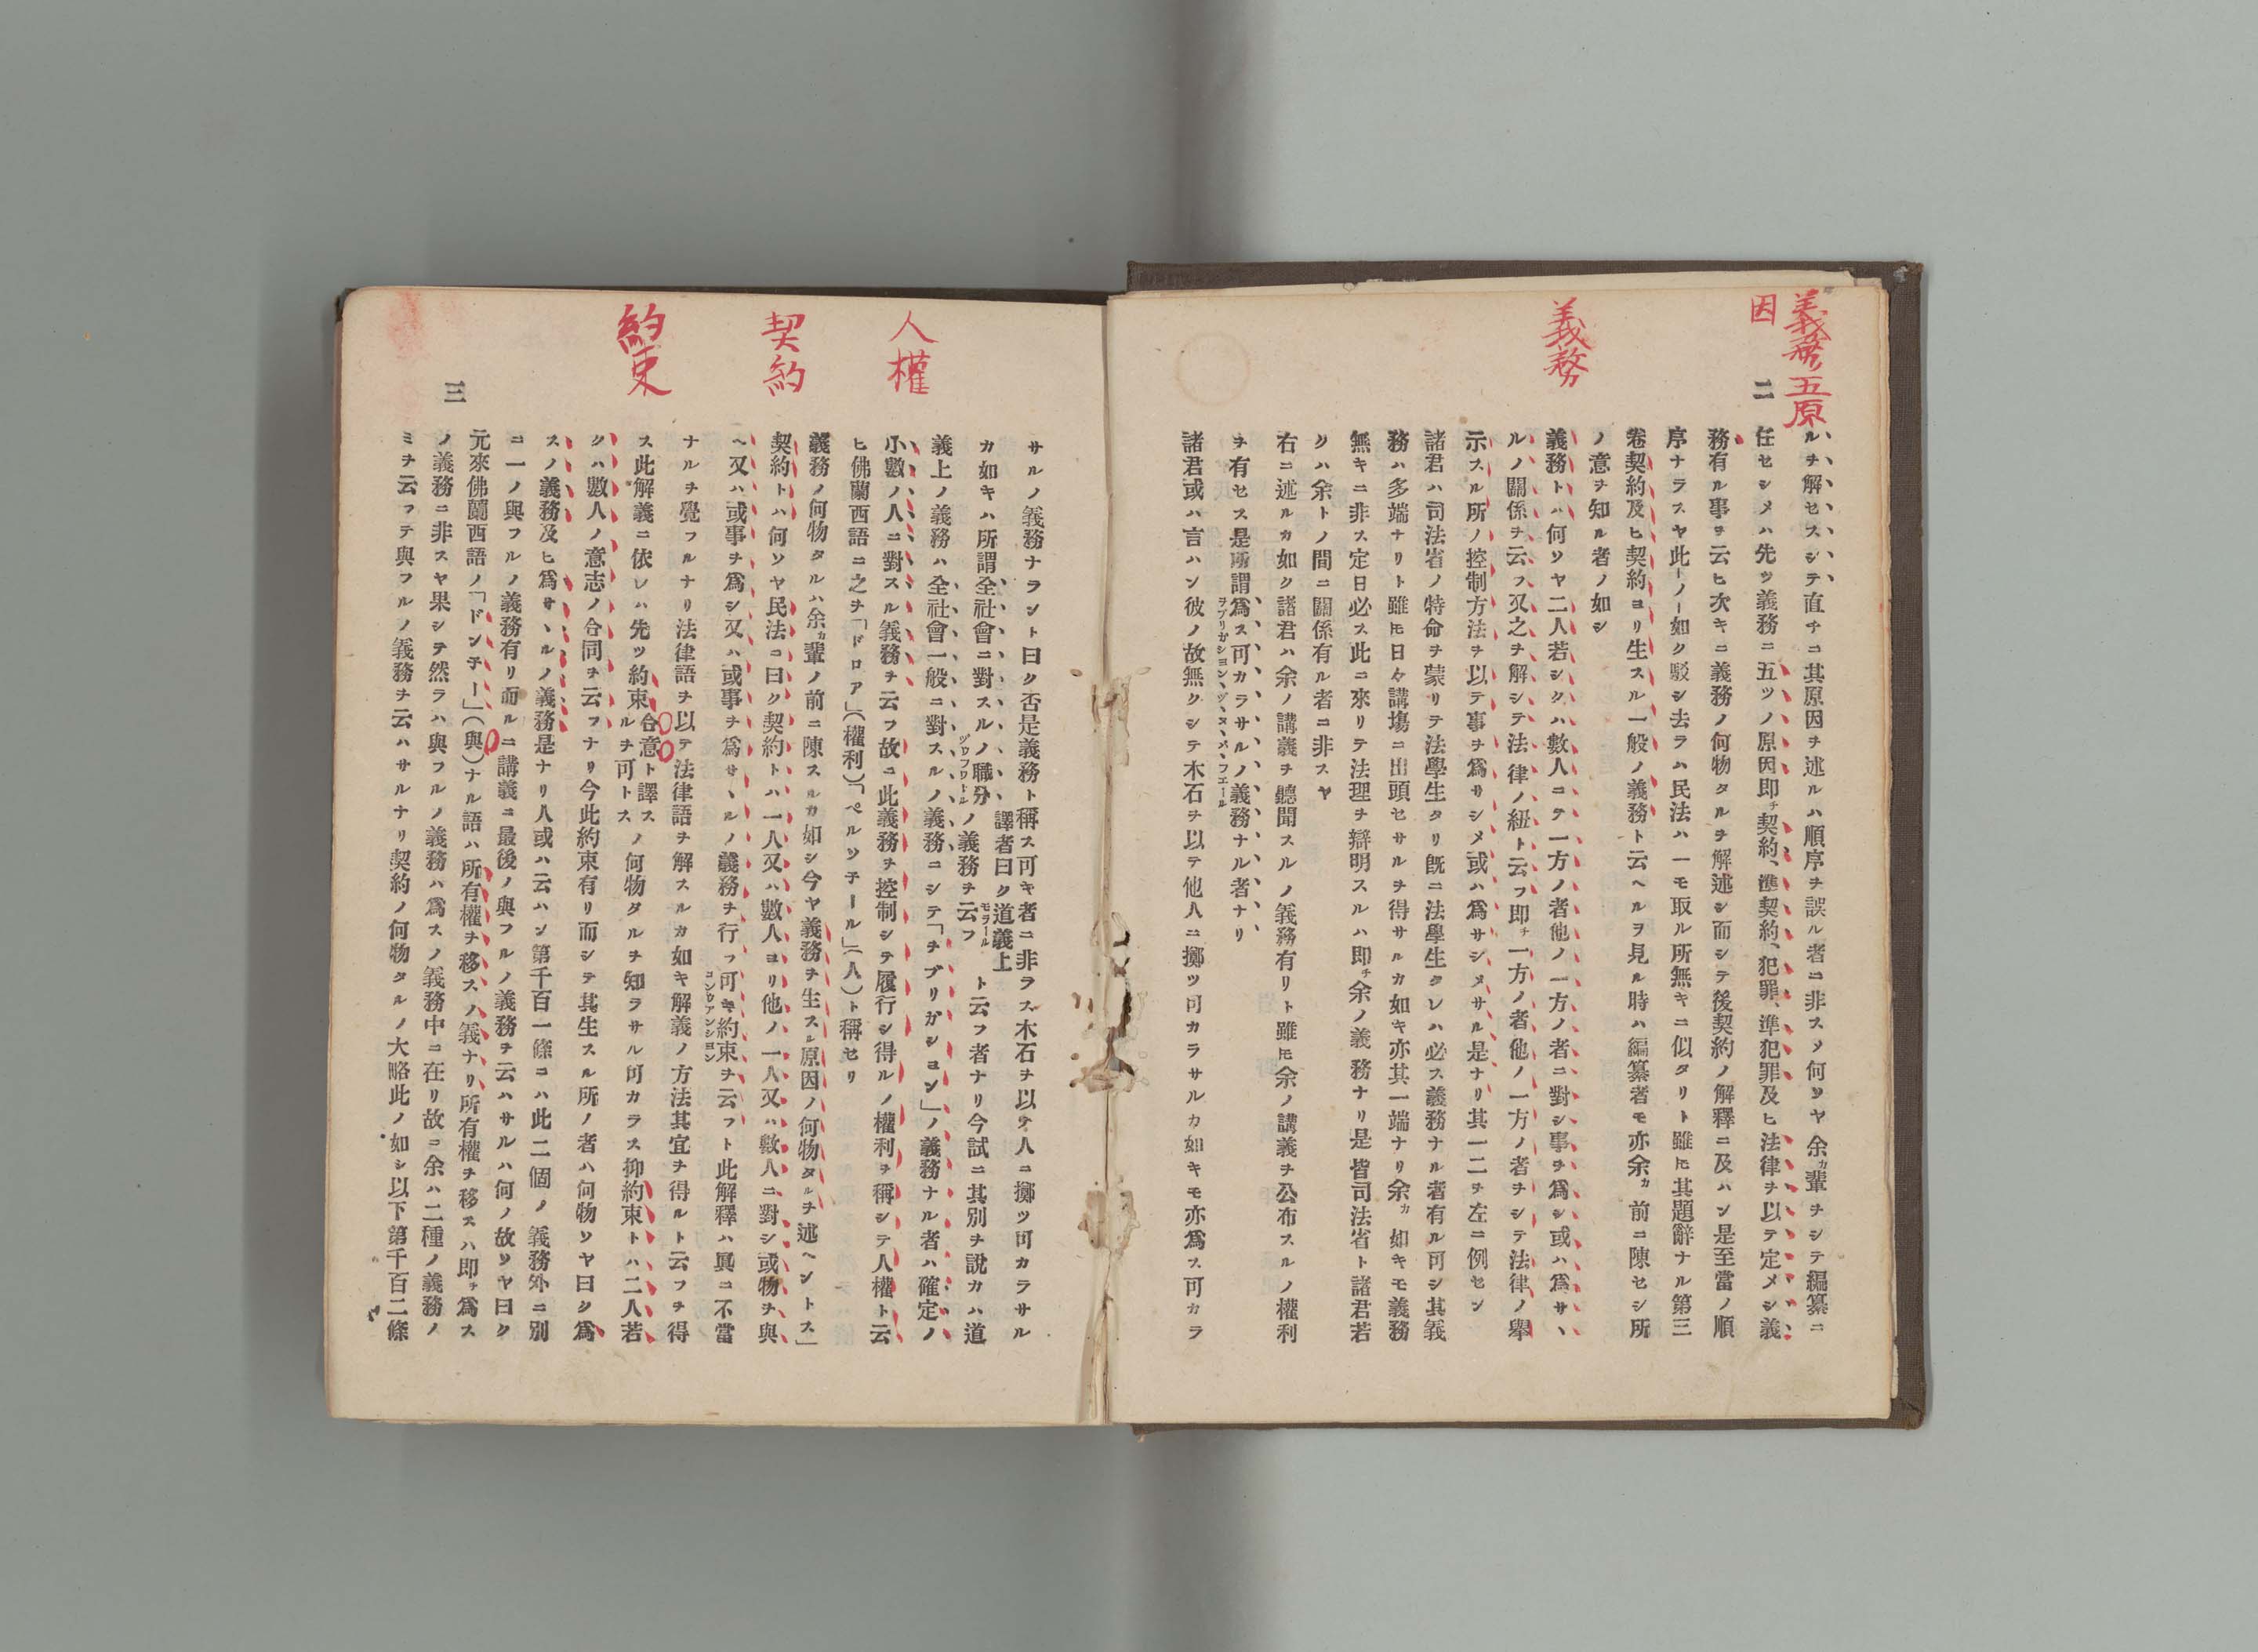 義務五原
因
義務
二
ルヲ解セスシテ直チニ其原因ヲ述ルハ順序ヲ誤ル者ニ非スノ何ソヤ余カ輩ヲシテ編纂ニ
任セシメハ先ツ義務ニ五ツノ原因即チ契約、準契約、犯罪、準犯罪及ヒ法律ヲ以テ定メシ義
務有ル事ヲ云ヒ次キニ義務ノ何物タルヲ解述シ而シテ後契約ノ解釋ニ及ハン是至當ノ順
序ナラスヤ此ノ如ク駁シ去ラハ民法ハ一モ取ル所無キニ似タリト雖モ其題辭ナル第三
卷契約及ヒ契約ヨリ生スル一般ノ義務ト云ヘルヲ見ル時ハ編纂者モ亦余カ前ニ陳セシ所
ノ意ヲ知ル者ノ如シ
義務トハ何ソヤ二人若シクハ數人ニテ一方ノ者他ノ一方ノ者ニ對シ事ヲ爲シ或ハ爲サヽ
ルノ關係ヲ云フ又之ヲ解シテ法律ノ紐ト云フ即チ一方ノ者他ノ一方ノ者ヲシテ法律ノ擧
示スル所ノ控制方法ヲ以テ事ヲ爲サシメ或ハ爲サシメサル是ナリ其一二ヲ左ニ例セン
諸君ハ司法省ノ特命ヲ蒙リテ法學生タリ既ニ法學生タレハ必ス義務ナル者有ル可シ其義
務ハ多端ナリト雖モ日々講塲ニ出頭セサルヲ得サルカ如キ亦其一端ナリ余カ如キモ義務
無キニ非ス定日必ス此ニ來リテ法理ヲ辯明スルハ即チ余ノ義務ナリ是皆司法省ト諸君若
クハ余トノ間ニ關係有ル者ニ非スヤ
右ニ述ルカ如ク諸君ハ余ノ講義ヲ聽聞スルノ義務有リト雖モ余ノ講義ヲ公布スルノ權利
ヲ有セス是所謂爲ス可カラサルノ義務ナル者ナリ
諸君或ハ言ハン彼ノ故無クシテ木石ヲ以テ他人ニ擲ツ可カラサルカ如キモ亦爲ス可カラ
人權
契約
約束
三
サルノ義務ナラント曰ク否是義務ト稱ス可キ者ニ非ラス木石ヲ以テ人ニ擲ツ可カラサル
カ如キハ所謂全社會ニ對スルノ職分ノ義務ヲ云フ譯者曰ク道義上ト云フ者ナリ今試ニ其別ヲ說カハ道
義上ノ義務ハ全社會一般ニ對スルノ義務ニシテ「ヲブリガション」ノ義務ナル者ハ確定ノ
小數ノ人ニ對スル義務ヲ云フ故ニ此義務ヲ控制シテ履行シ得ルノ權利ヲ稱シテ人權ト云
ヒ佛蘭西語ニ之ヲ「ドロア」(權利)「ペルソナール」(人)ト稱セリ
義務ノ何物タルハ余カ輩ノ前ニ陳スルカ如シ今ヤ義務ヲ生スル原因ノ何物タルヲ述ヘントス」
契約トハ何ソヤ民法ニ曰ク契約トハ一人又ハ數人ヨリ他ノ一人又ハ數人ニ對シ或物ヲ與
ヘ又ハ或事ヲ爲シ又ハ或事ヲ爲サヽルノ義務ヲ行フ可キ約束ヲ云フト此解釋ハ眞ニ不當
ナルヲ覺フルナリ法律語ヲ以テ法律語ヲ解スルカ如キ解義ノ方法其宜ヲ得ルト云フヲ得
ス此解義ニ依レハ先ツ約束合意ト譯スルヲ可トスノ何物タルヲ知ラサル可カラス抑約束トハ二人若
クハ數人ノ意志ノ合同ヲ云フナリ今此約束有リ而シテ其生スル所ノ者ハ何物ソヤ曰ク爲
スノ義務及ヒ爲サヽルノ義務是ナリ人或ハ云ハン第千百一條ニハ此二個ノ義務外ニ別
ニ一ノ與フルノ義務有リ而ルニ講義ニ最後ノ與フルノ義務ヲ云ハサルハ何ノ故ソヤ曰ク
元來佛蘭西語ノ「ドンナー」(與)ナル語ハ所有權ヲ移スノ義ナリ所有權ヲ移スハ即チ爲ス
ノ義務ニ非スヤ果シテ然ラハ與フルノ義務ハ爲スノ義務中ニ在リ故ニ余ハ二種ノ義務ノ
ミヲ云フテ與フルノ義務ヲ云ハサルナリ契約ノ何物タルノ大略此ノ如シ以下第千百二條